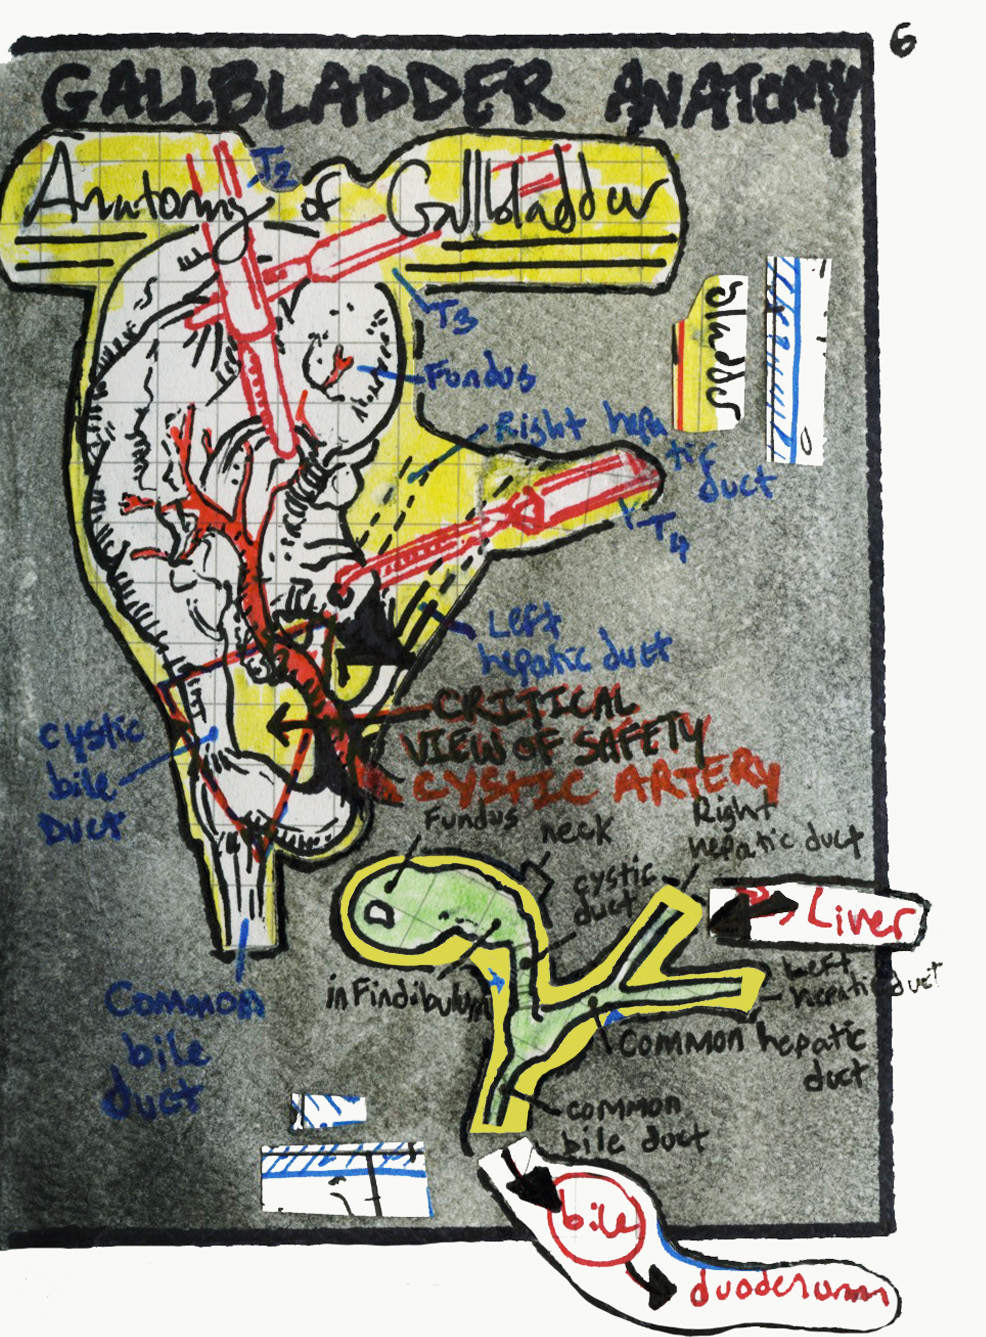 6
GALLBLADDER ANATOMY
Anatomy of Gallbladder
T2
T3
Fundus
bladder
Right hepa
tic
duct
T4
Left
hepatic duct
CRITICAL
VIEW OF SAFETY
CYSTIC ARTERY
cystic
bile
Duct
Fundus
neck
Right
hepatic duct
cystic
duct
Liver
infindibulum
Left
hepatic duct
common hepatic
duct
Common
bile
duct
common
bile duct
bile
duoderumm